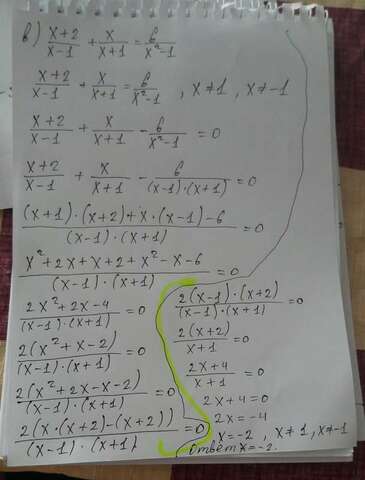 в) x+2/x-1 + x/x+1 = 6/x²-1
x+2/x-1 + x/x+1 = 6/x²-1 , x≠1 , x≠-1
x+2/x-1 + x/x+1 - 6/x²-1 = 0
x+2/x-1 + x/x+1 - 6/(x-1)·(x+1) = 0
(x+1)·(x+2)+x·(x-1)-6/(x-1)·(x+1) = 0
x²+2x+x+2+x²-x-6/(x-1)·(x+1) = 0
2x²+2x-4/(x-1)·(x+1) = 0
2(x²+x-2)/(x-1)·(x+1) = 0
2(x²+2x-x-2)/(x-1)·(x+1) = 0
2(x·(x+2)-(x+2))/(x-1)·(x+1) = 0
2(x-1)·(x+2)/(x-1)·(x+1) = 0
2(x+2)/x+1 = 0
2x+4/x+1 = 0
2x+4=0
2x=-4
x=-2 , x≠1, x≠-1
Ответ x=-2.